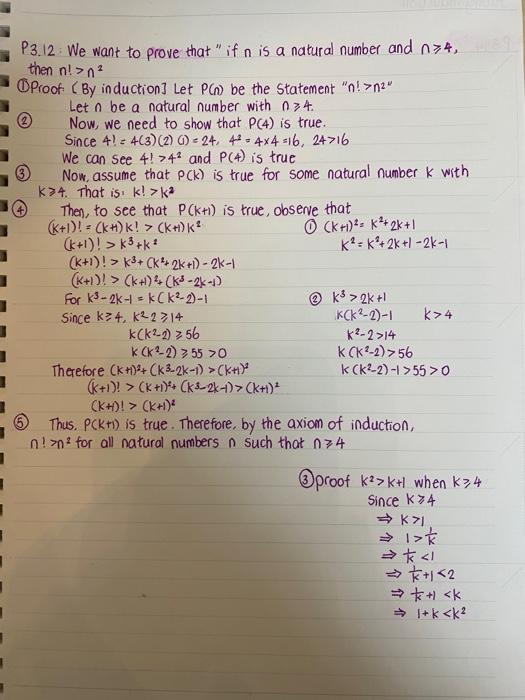 P3.12: We want to prove that " if n is a natural number and n⩾4,
then n! > n²
① Proof: [By induction] Let P(n) be the Statement "n! > n²"
Let n be a natural number with n ⩾ 4.
② Now, we need to show that P(4) is true.
Since 4! = 4(3)(2)(1) = 24, 4² = 4×4 = 16, 24>16
We can see 4! > 4² and P(4) is true
③ Now, assume that P(k) is true for some natural number k with
k⩾4. That is: k! > k²
④ Then, to see that P(k+1) is true, observe that
(k+1)! = (k+1) k! > (k+1) k²
(k+1)! > k³+k²
(k+1)! > k³+ (k²+2k+1) - 2k-1
(k+1)! > (k+1)²+ (k³-2k-1)
For k³-2k-1 = k(k²-2)-1
Since k⩾4, k²-2⩾14
k(k²-2) ⩾ 56
k(k²-2) ⩾ 55 > 0
Therefore (k+1)²+ (k³-2k-1) > (k+1)²
(k+1)! > (k+1)²+ (k³-2k-1) > (k+1)²
(k+1)! > (k+1)²
① (k+1)² = k²+2k+1
k² = k²+2k+1-2k-1
② k³ > 2k+1
k(k²-2)-1 k>4
k²-2>14
k(k²-2)>56
k(k²-2)-1>55>0
⑤ Thus, P(k+1) is true. Therefore, by the axiom of induction,
n! > n² for all natural numbers n such that n⩾4
③ proof k²>k+1 when k⩾4
Since k⩾4
⇒ k>1
⇒ 1>1/k
⇒ 1/k <1
⇒ 1/k+1<2
⇒ 1/k+1 <k
⇒ 1+k<k²